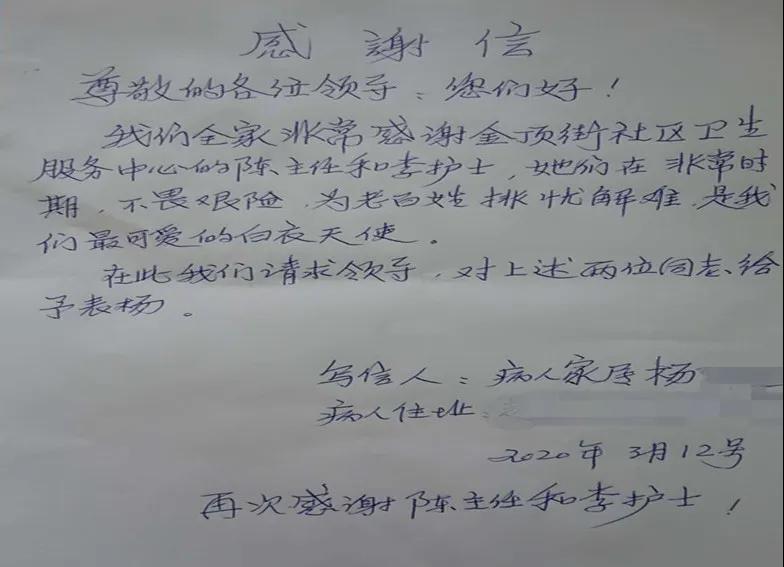 感谢信
尊敬的各位领导:您们好!
我们全家非常感谢金顶街社区卫生
服务中心的陈主任和李护士,她们在非常时
期,不畏艰险,为老百姓排忧解难,是我
们最可爱的白衣天使。
在此我们请求领导,对上述两位同志给
予表杨。
写信人:病人家属杨
病人住址:
2020年3月12号
再次感谢陈主任和李护士!